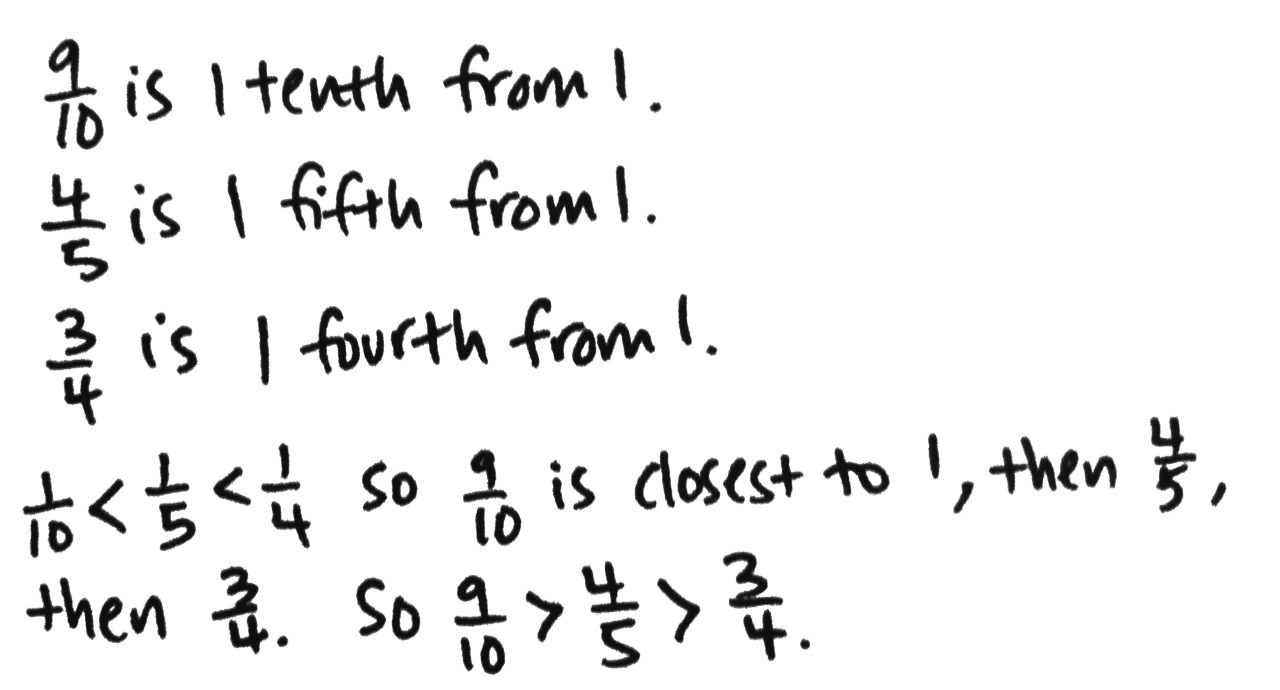 9/10 is 1 tenth from 1.
4/5 is 1 fifth from 1.
3/4 is 1 fourth from 1.
1/10 < 1/5 < 1/4 so 9/10 is closest to 1, then 4/5,
then 3/4. So 9/10 > 4/5 > 3/4.